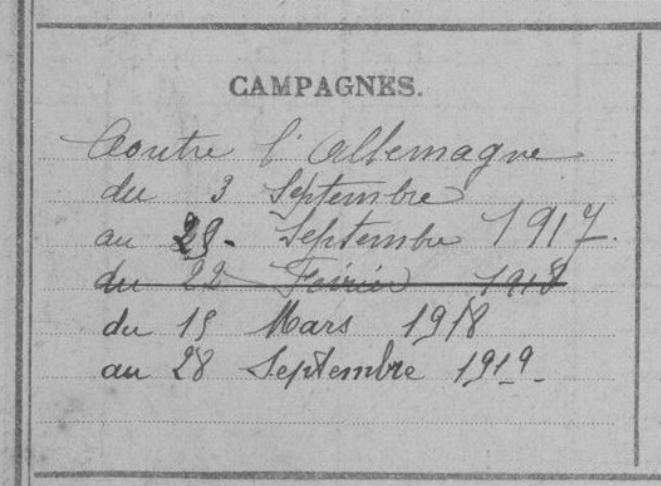 CAMPAGNES.
Contre l'Allemagne
du 3 Septembre
au 29. Septembre 1917.
du 22 Février 1918
du 15 Mars 1918
au 28 Septembre 1919.